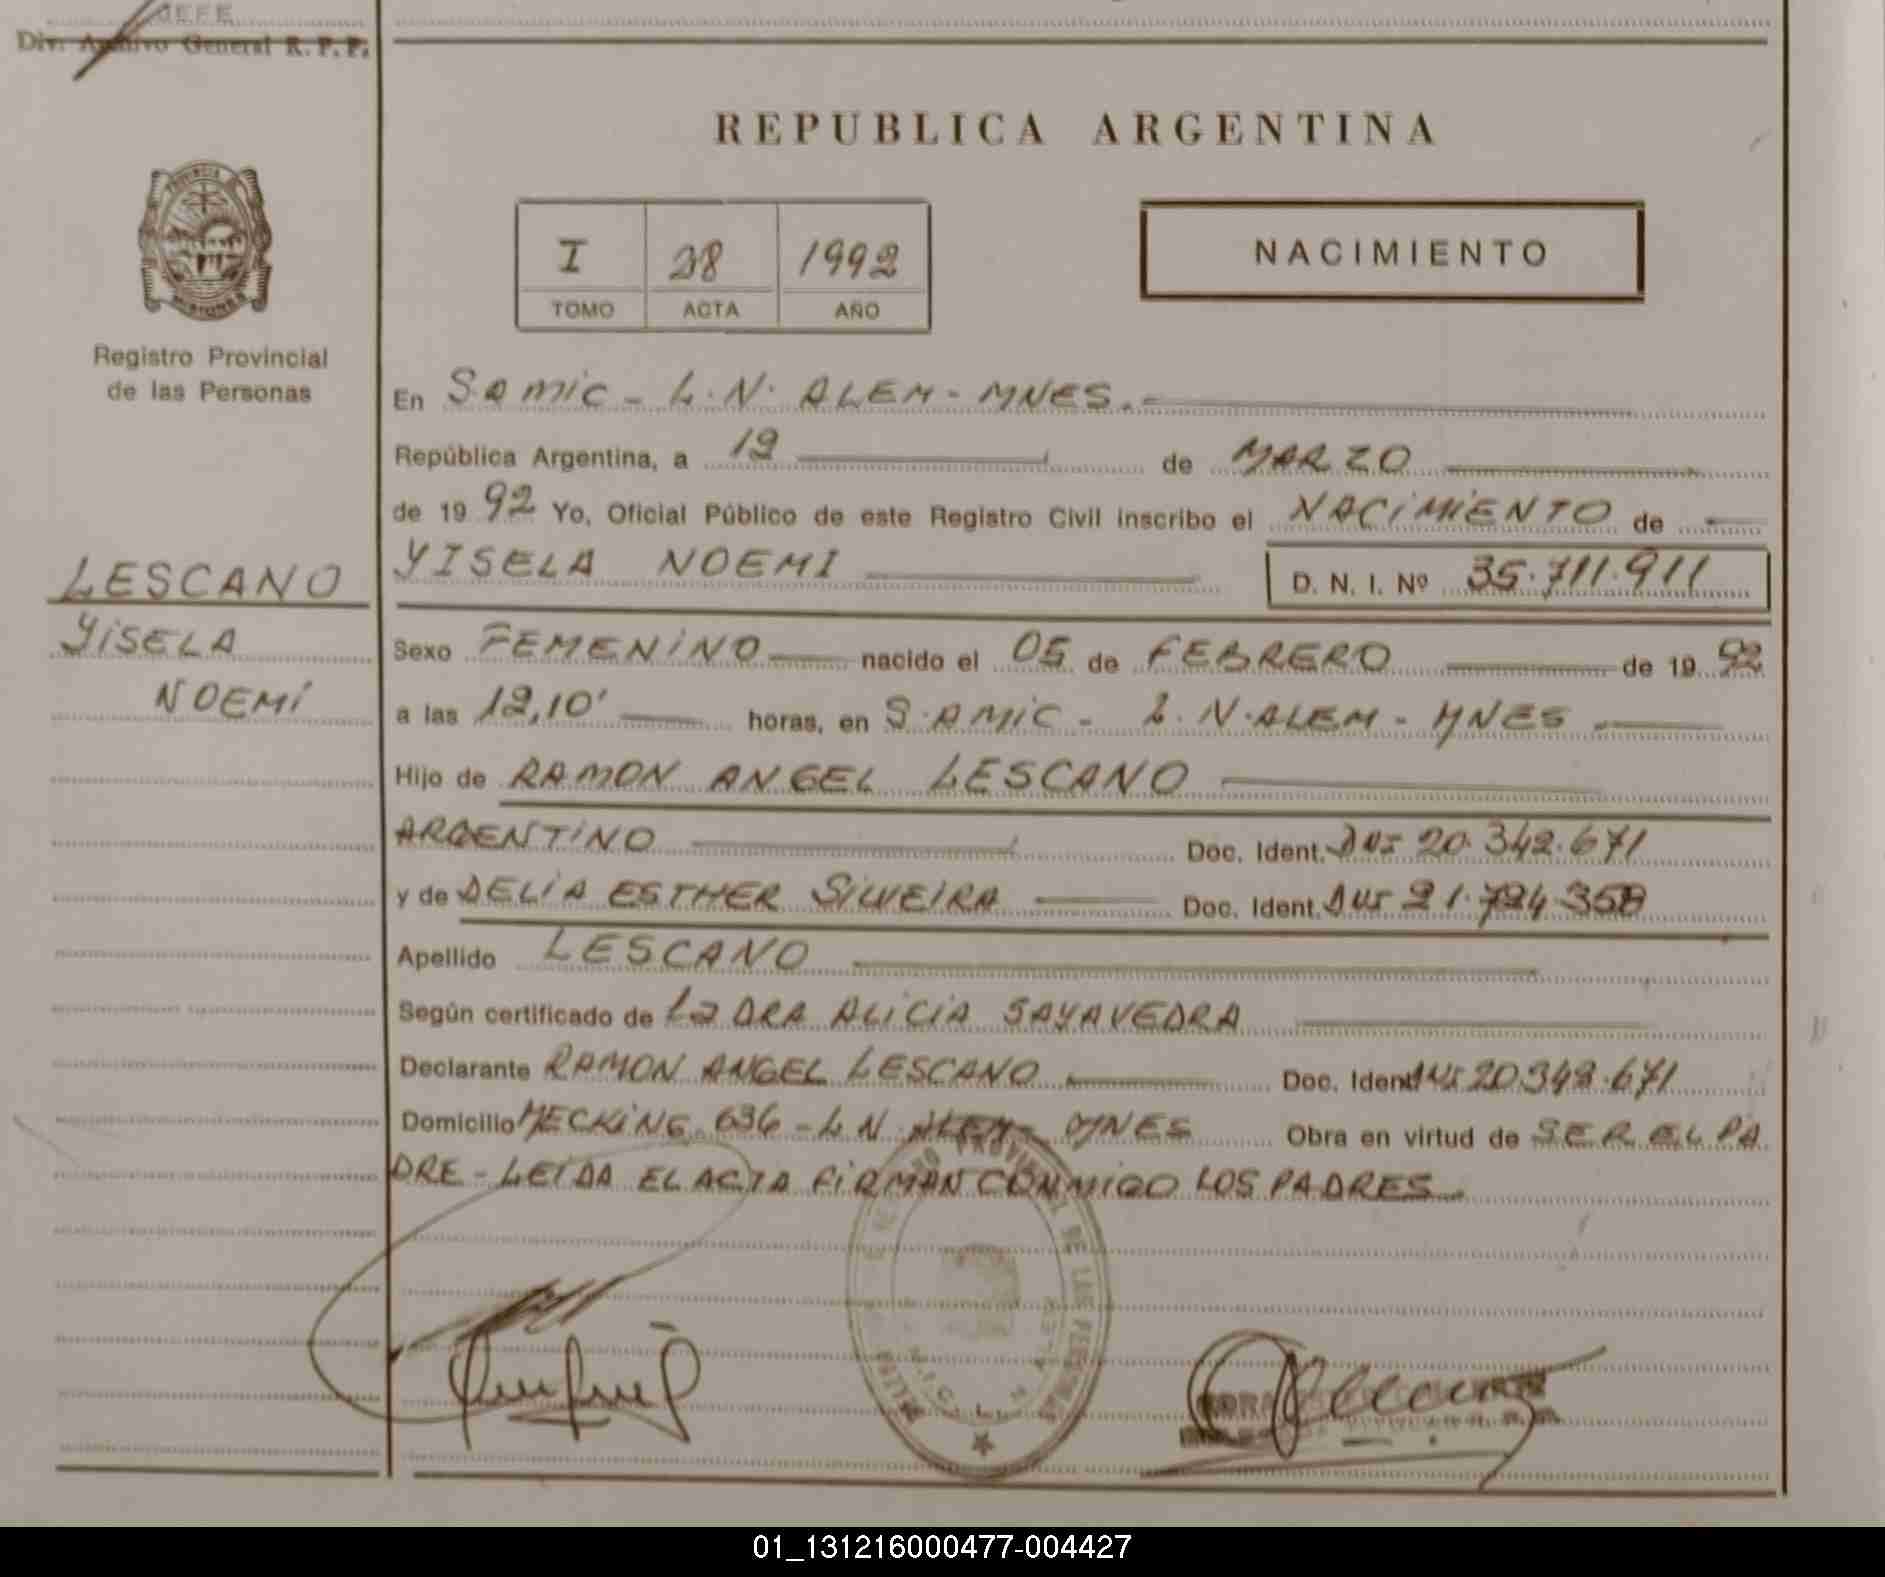 JEFE
Div. Archivo General R. P. P.
REPUBLICA ARGENTINA
PROVINCIA
MISIONES
Registro Provincial
de las Personas
I 28 1992
TOMO ACTA AÑO
NACIMIENTO
En S.AMIC - L.N. ALEM - MNES.-
República Argentina, a 12 de MARZO
de 1992 Yo, Oficial Público de este Registro Civil inscribo el NACIMIENTO de
YISELA NOEMI D. N. I. Nº 35.711.911
LESCANO
YISELA
NOEMI
Sexo FEMENINO nacido el 05 de FEBRERO de 1992
a las 12,10' horas, en S.AMIC - L.N. ALEM - MNES.
Hijo de RAMON ANGEL LESCANO
ARGENTINO Doc. Ident. DNI 20.342.671
y de DELIA ESTHER SILVEIRA Doc. Ident. DNI 21.724.358
Apellido LESCANO
Según certificado de La DRA ALICIA SAYAVEDRA
Declarante RAMON ANGEL LESCANO Doc. Ident. DNI 20.342.671
Domicilio MECKING 636 - L N ALEM - MNES Obra en virtud de SER EL PA
DRE - LEIDA EL ACTA FIRMAN CONMIGO LOS PADRES.
PROVINCIAL DE LAS PERSONAS
01_131216000477-004427